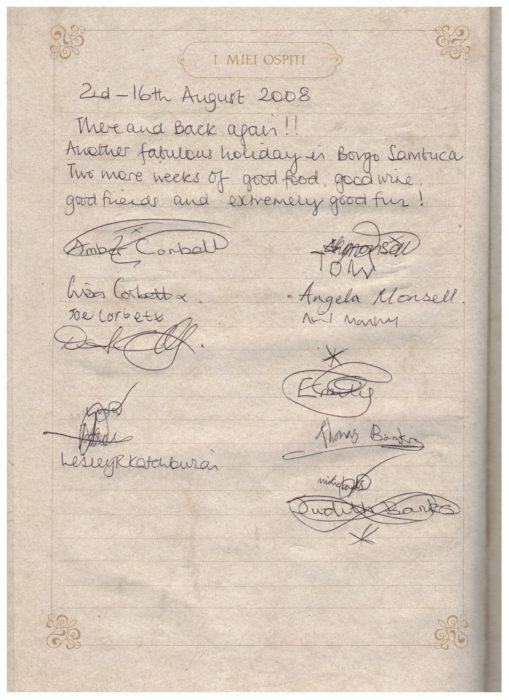 I MIEI OSPITI
2nd - 16th August 2008
There and Back again!!
Another fabulous holiday in Borgo Sambuca
Two more weeks of good food, good wine,
good friends and extremely good fun!
Amber Corbett
Tom
Corbett x
Angela Monsell.
Joe Corbett
Emily
Thomas Banks
Lesley
Judith Banks